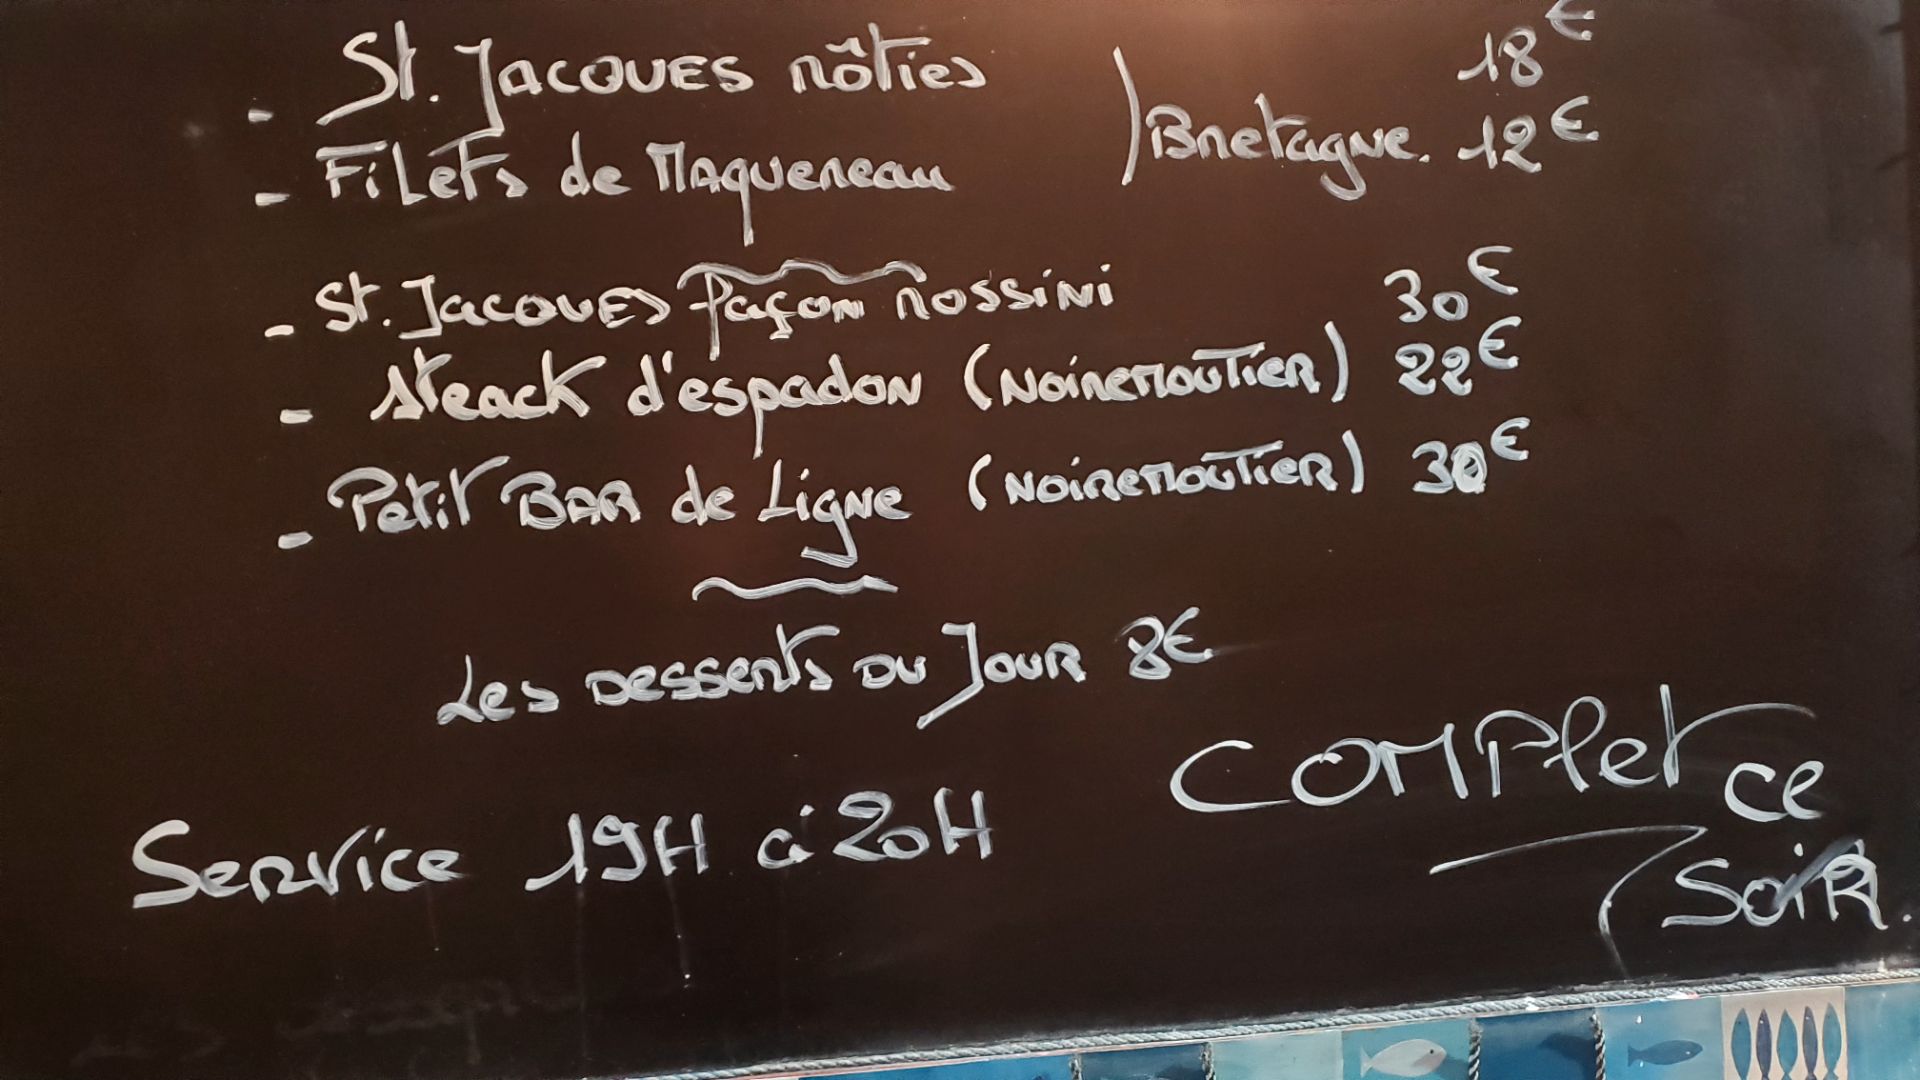 - St. Jacques rôties 18€
- Filets de Maquereau ) Bretagne. 12€
- St. Jacques façon rossini 30€
- steack d'espadon (Noiremoutier) 22€
- Petit Bar de Ligne (Noiremoutier) 30€
Les desserts du Jour 8€
Complet ce
soir.
Service 19H à 20H